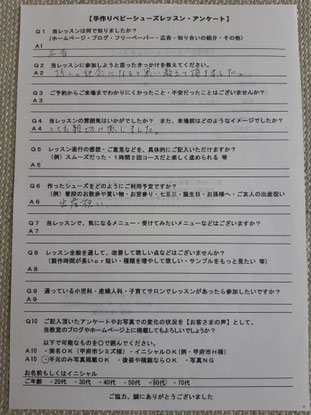 【手作りベビーシューズレッスン・アンケート】
Q1 当レッスンは何で知りましたか?
(ホームページ・ブログ・フリーペーパー・広告・知り合いの紹介・その他)
A1
広告
Q2 当レッスンに参加しようと思ったきっかけを教えてください。
A2
Q3 ご予約からご来場までわかりにくかったこと・不安だったことはございませんか?
A3
Q4 当レッスンの雰囲気はいかがでしたか? また、来場前はどのようなイメージでしたか?
A4 とても親切に感じました。
Q5 レッスン進行の感想・ご意見などを、具体的にご記入いただけますか?
(例)スムーズだった・1時間2回コースだと楽しく進められる 等
A5
Q6 作ったシューズをどのようにご利用予定ですか?
(例)普段のお散歩や買い物・お宮参り・七五三・誕生日・お孫様へ・ご友人の出産祝い
A6 出産祝い
Q7 当レッスンで、気になるメニュー・受けてみたいメニューなどはございますか?
A7
Q8 レッスン全般を通して、改善して欲しい点などはございませんか?
(製作時間が長いor短い・種類を増やして欲しい・サンプルをもっと見たい 等)
A8
Q9 通っている小児科・産婦人科・子育てサロンでレッスンがあったら参加したいですか?
A9
Q10 ご記入頂いたアンケートやお写真での変化の状況を【お客さまの声】として、
当教室のブログやホームページ上に掲載してもよろしいでしょうか?
以下で可能なものを○で囲んでください。
A10 ・実名OK(甲府市シミズ様)・イニシャルOK(例・甲府市H様)
A10 ・手元のみ写真掲載OK ・後姿や横顔ならOK ・写真NG
お名前もしくはイニシャル
ご年齢 ・20代 ・30代 ・40代 ・50代 ・60代 ・70代
ご協力、誠にありがとうございました